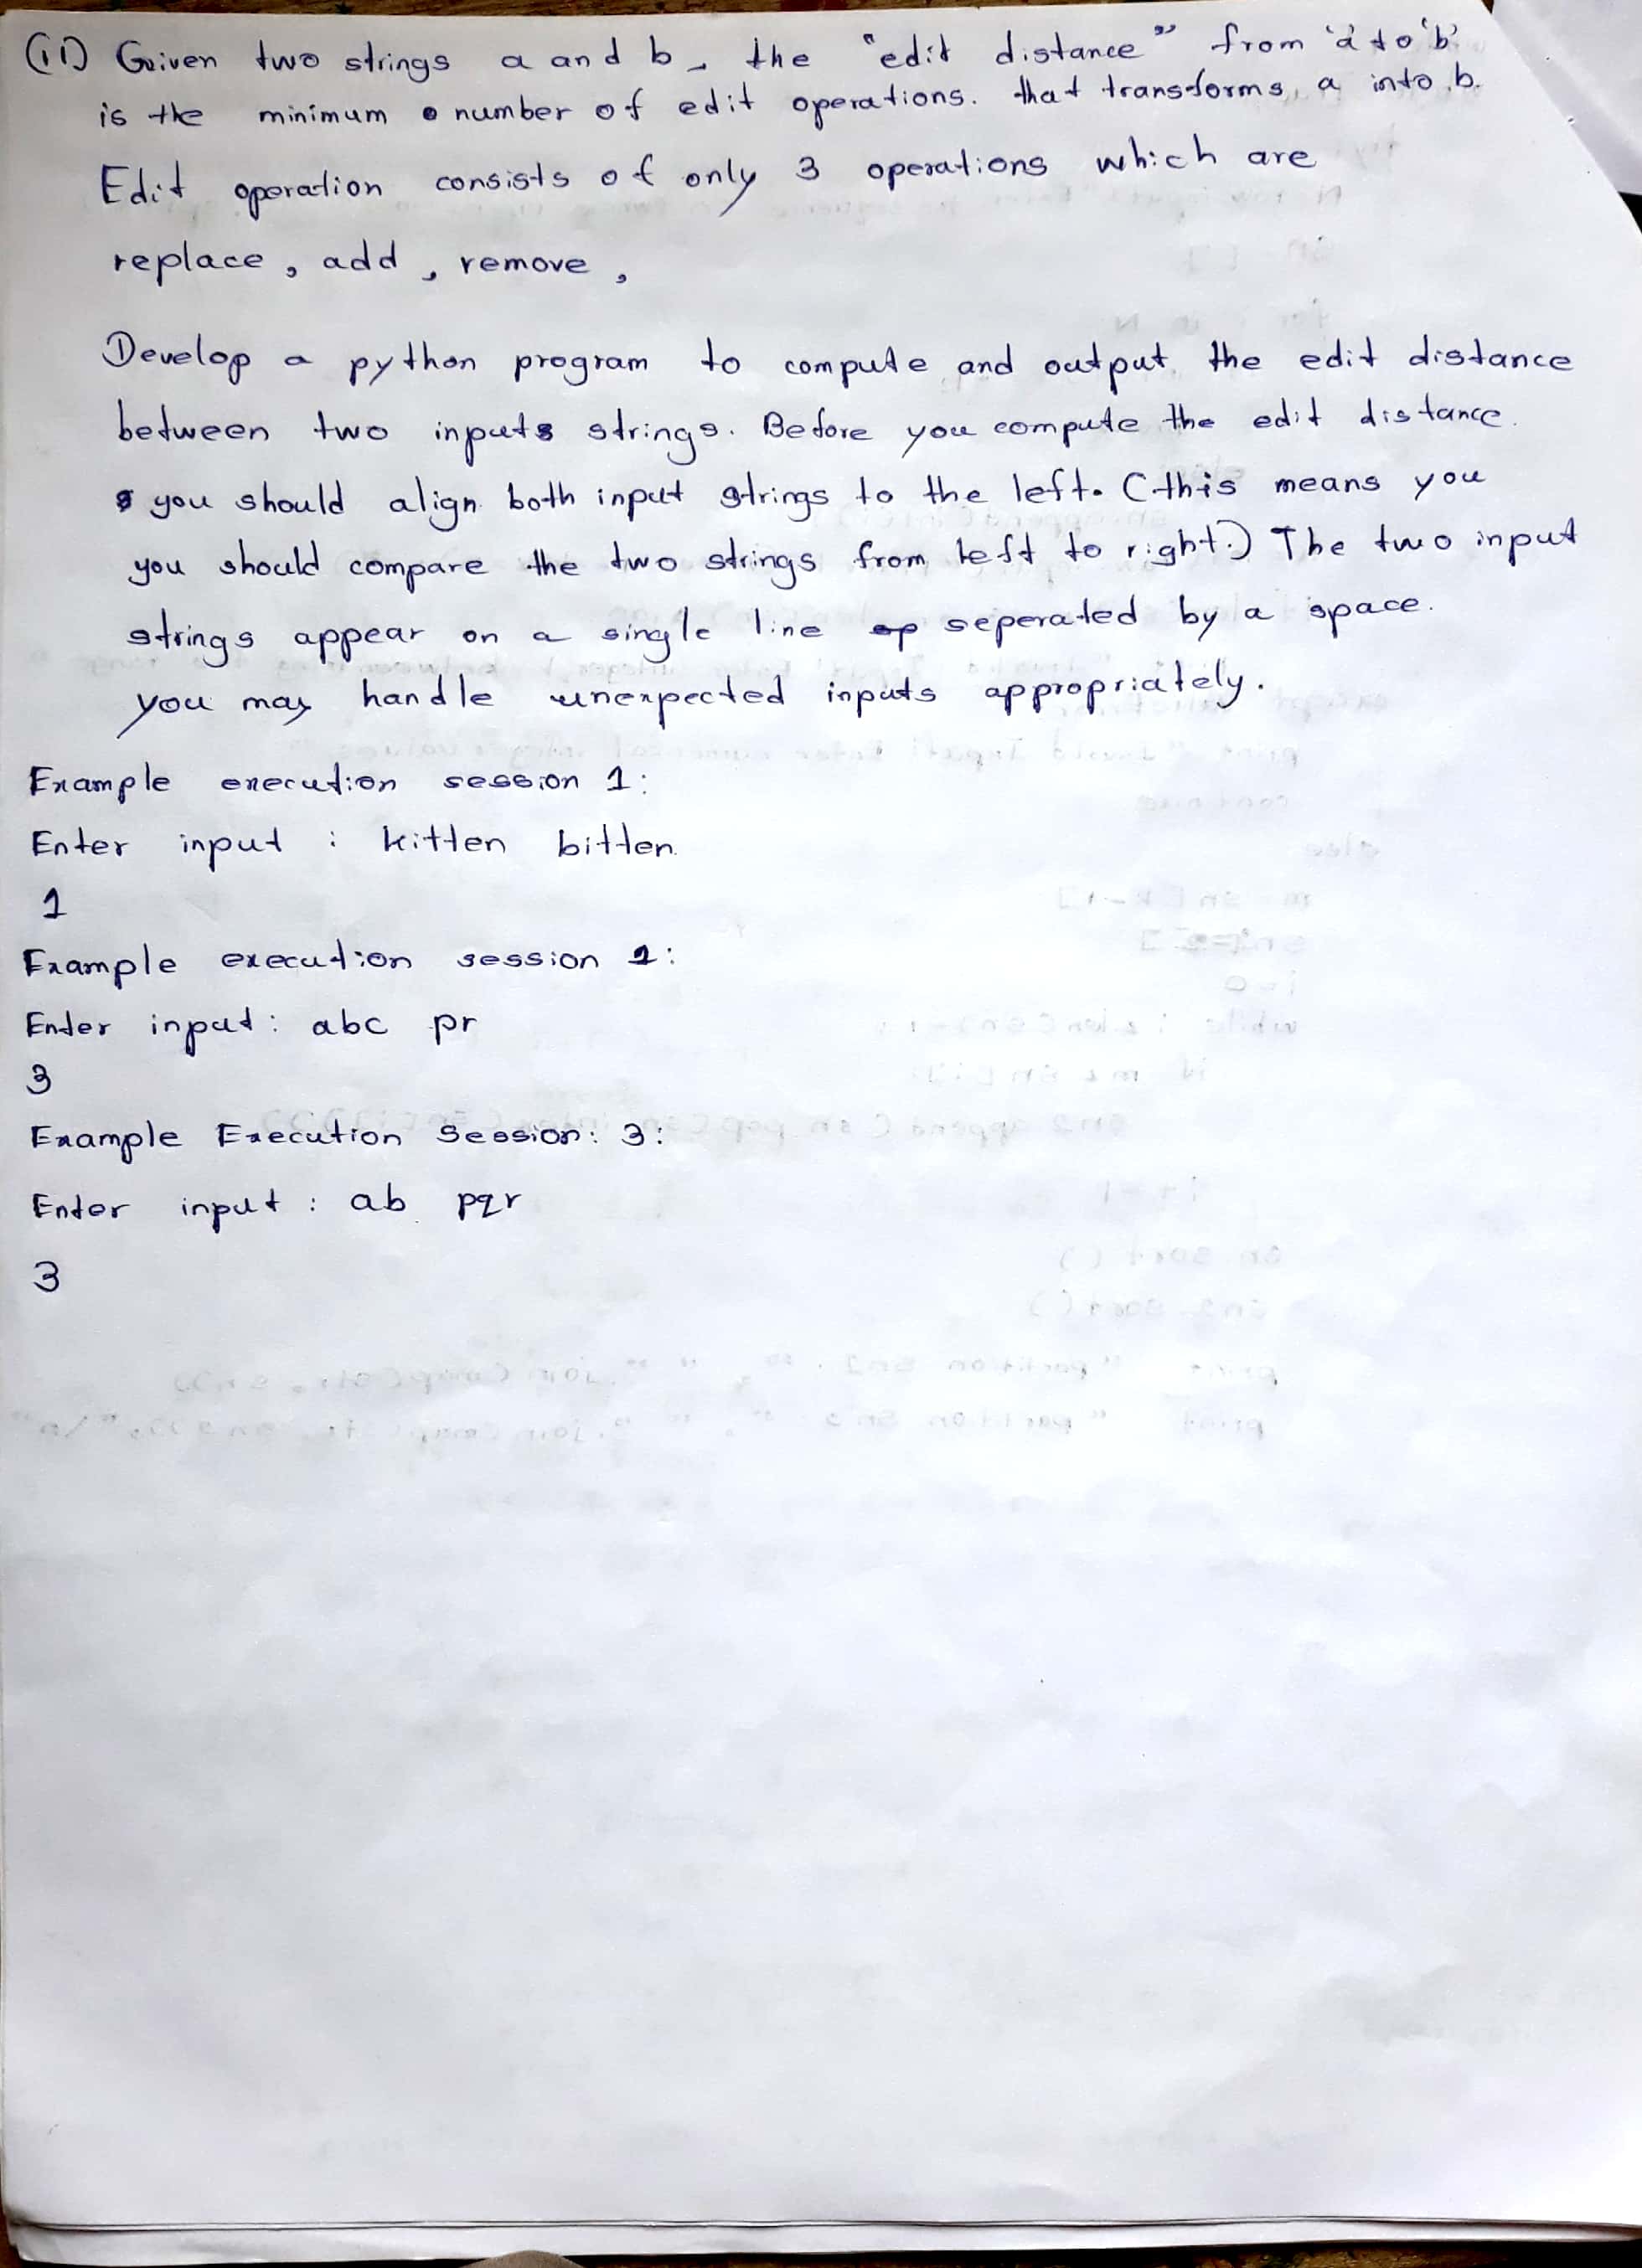 (11) Given two strings a and b, the "edit distance" from 'a' to 'b'
is the minimum number of edit operations. that transforms a into b.
Edit operation consists of only 3 operations which are
replace, add, remove,
Develop a python program to compute and output the edit distance
between two inputs strings. Before you compute the edit distance.
you should align both input strings to the left. (this means you
you should compare the two strings from left to right.) The two input
strings appear on a single line seperated by a space.
you may handle unexpected inputs appropriately.
Example execution session 1:
Enter input : kitten bitten
1
Example execution session 2:
Enter input: abc pr
3
Example Execution Session: 3:
Enter input : ab pqr
3